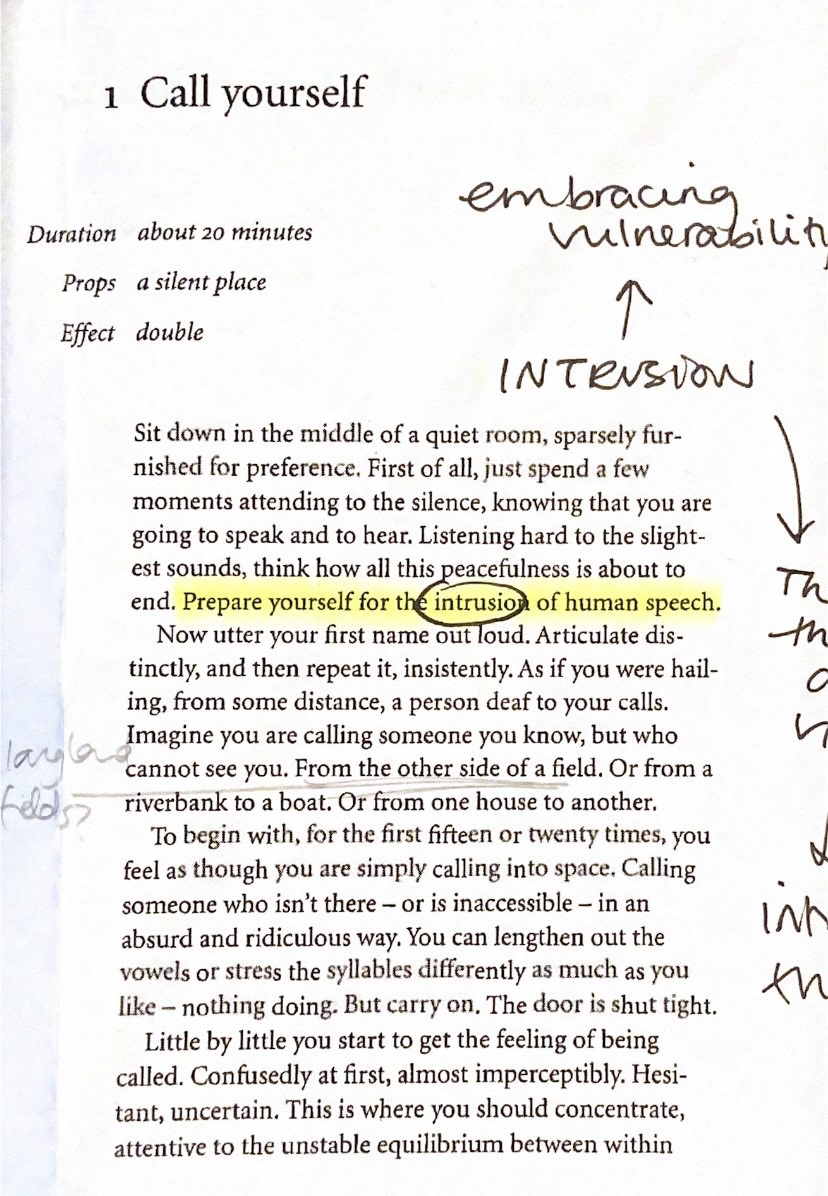 1 Call yourself
embracing
vulnerability
Duration about 20 minutes
Props a silent place
Effect double
INTRUSION
Sit down in the middle of a quiet room, sparsely fur-
nished for preference. First of all, just spend a few
moments attending to the silence, knowing that you are
going to speak and to hear. Listening hard to the slight-
est sounds, think how all this peacefulness is about to
end. Prepare yourself for the intrusion of human speech.
Now utter your first name out loud. Articulate dis-
tinctly, and then repeat it, insistently. As if you were hail-
ing, from some distance, a person deaf to your calls.
Imagine you are calling someone you know, but who
cannot see you. From the other side of a field. Or from a
riverbank to a boat. Or from one house to another.
fields?
To begin with, for the first fifteen or twenty times, you
feel as though you are simply calling into space. Calling
someone who isn't there – or is inaccessible – in an
absurd and ridiculous way. You can lengthen out the
vowels or stress the syllables differently as much as you
like – nothing doing. But carry on. The door is shut tight.
Little by little you start to get the feeling of being
called. Confusedly at first, almost imperceptibly. Hesi-
tant, uncertain. This is where you should concentrate,
attentive to the unstable equilibrium between within